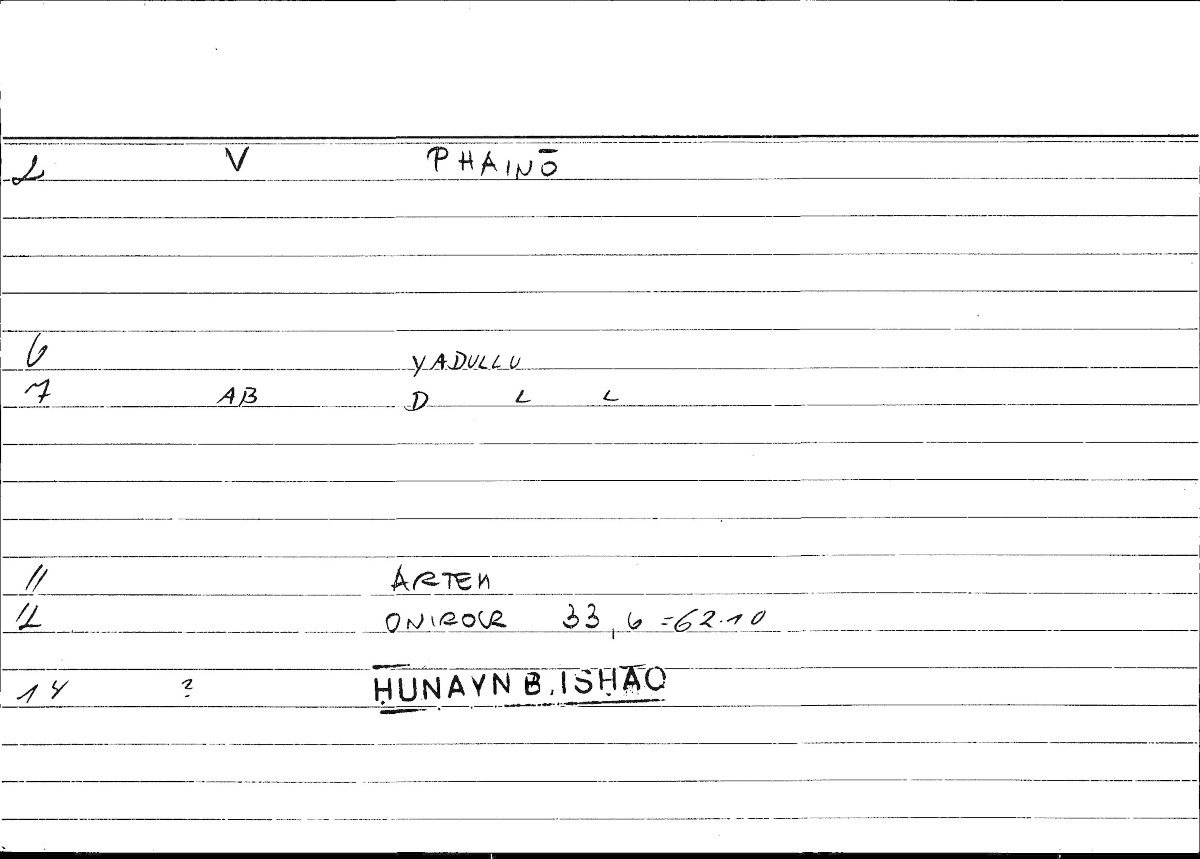 2 V PHAINŌ
6 YADULLU
7 AB D L L
11 ARTEM
12 ONIROCR 33,6 =62.10
14 ? ḤUNAYN B. ISḤĀQ